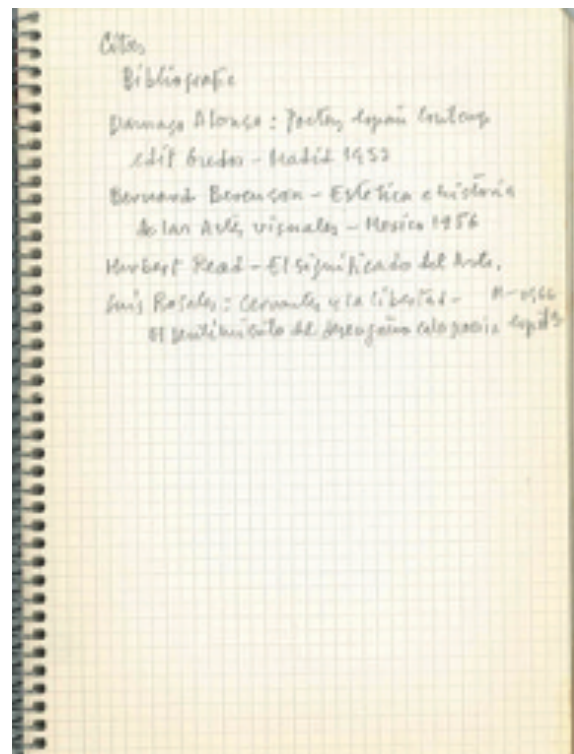 Citas
Bibliografia
Damaso Alonso: Poetas españ contemp
edit Gredos - Madrid 1952
Bernard Berenson - Estetica e historia
de las Artes visuales - Mexico 1956
Herbert Read - El significado del Arte.
Luis Rosales: Cervantes y la libertad -
El sentimiento del desengaño en la poesia